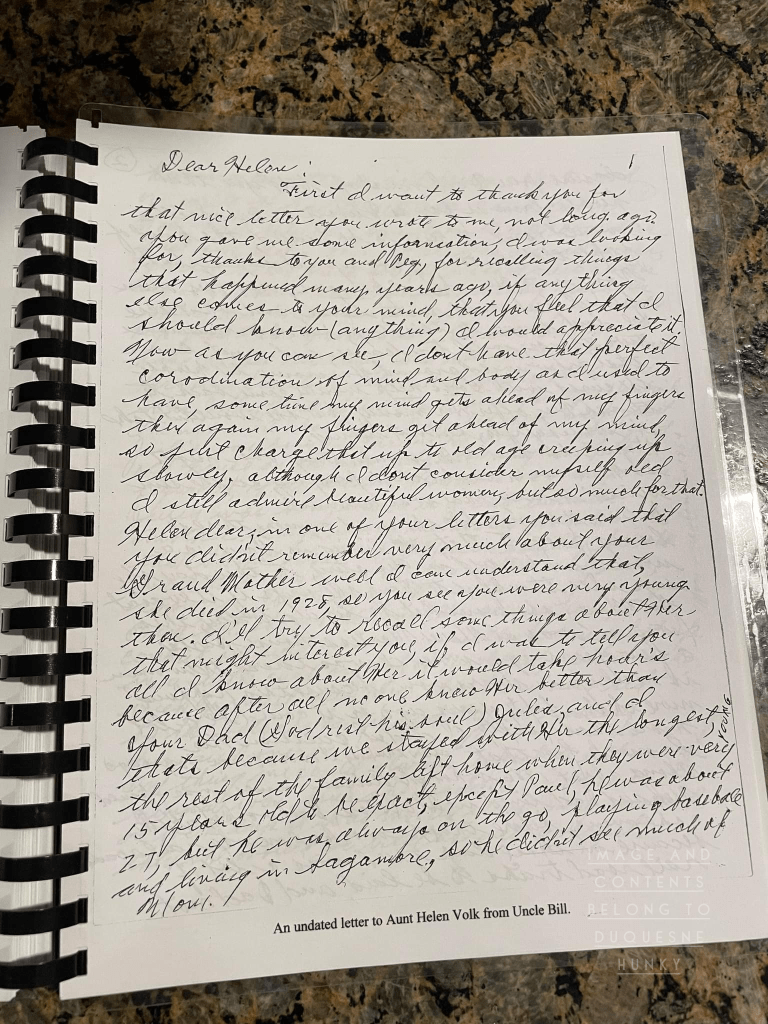 1
Dear Helen:
First I want to thank you for
that nice letter you wrote to me, not long ago.
you gave me some information, I was looking
for, thanks to you and Peg, for recalling things
that happened many years ago, if anything
else comes to your mind, that you feel that I
should know (anything) I would appreciate it.
Now as you can see, I dont have that perfect
corodination of mind and body as I used to
have, some time my mind gets ahead of my fingers
then again my fingers get ahead of my mind,
so just charge that up to old age creeping up
slowly, although I dont consider myself old
I still admire beautiful women, but so much for that.
Helen dear, in one of your letters you said that
you didn't remember very much about your
Grand Mother well I can understand that,
she died in 1928, so you see you were very young
then. I'll try to recall some things about Her
that might interest you, if I was to tell you
all I know about Her it would take hour's
because after all no one knew Her better than
your Dad (God rest his soul) Jules, and I
thats because we stayed with Her the longest,
the rest of the family left home when they were very YOUNG
15 years old to be exact, except Paul, he was about
27, but he was always on the go, playing baseball
and living in Sagamore, so he didn't see much of
Mom.
An undated letter to Aunt Helen Volk from Uncle Bill.
IMAGE AND
CONTENTS
BELONG TO
DUQUESNE
HUNKY